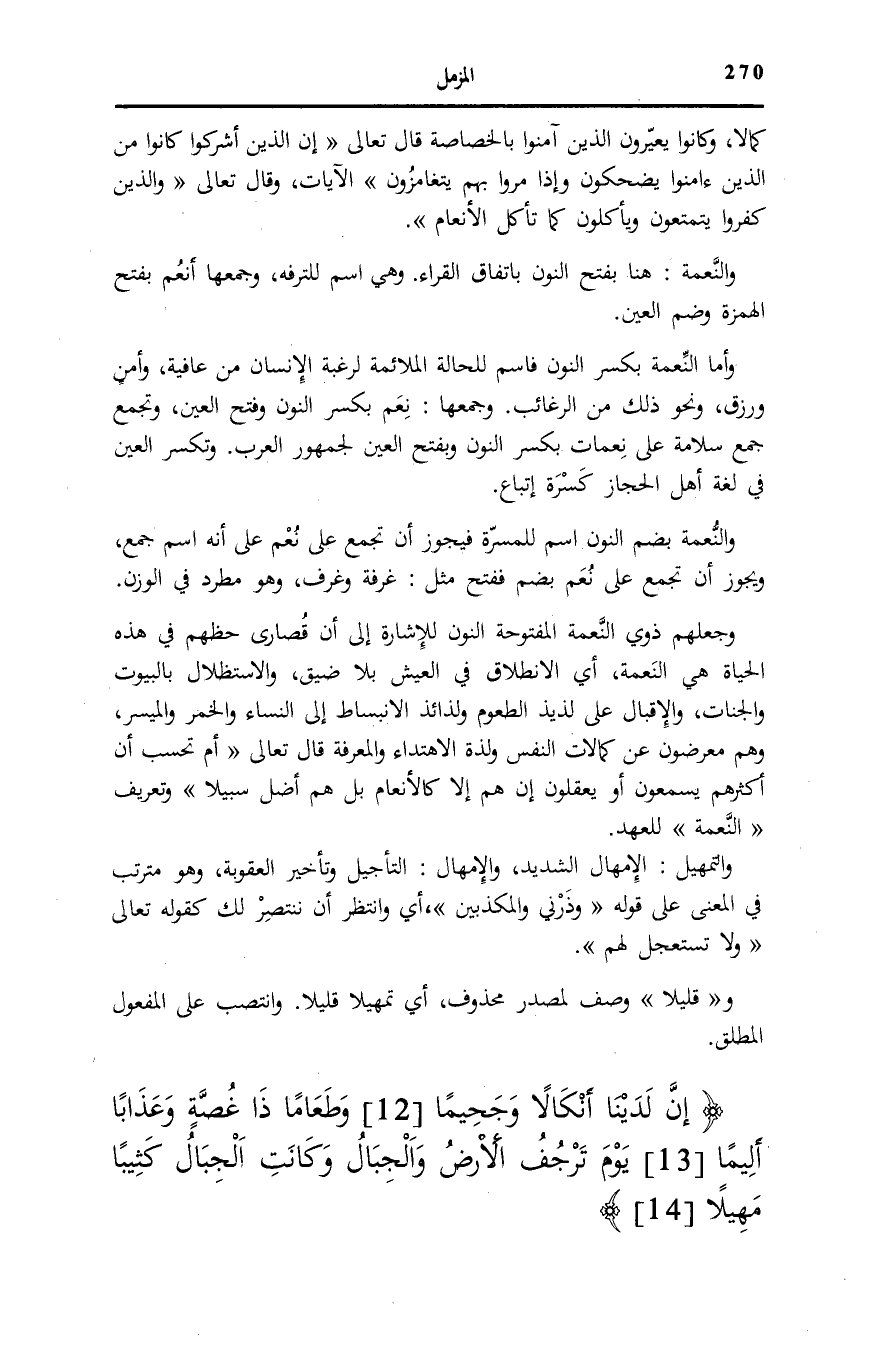 270
المزمل
كمالا، وكانوا يعيّرون الذين آمنوا بالخصاصة قال تعالى « إن الذين أشركوا كانوا من
الذين ءامنوا يضحكون وإذا مروا بهم يتغامزُون » الآيات، وقال تعالى « والذين
كفروا يتمتعون ويأكلون كما تأكل الأنعام ».
والنَّعمة : هنا بفتح النون باتفاق القراء. وهي اسم للترفه، وجمعها أنعُم بفتح
الهمزة وضم العين.
وأما النِّعمة بكسر النون فاسم للحالة الملائمة لرغبة الإنسان من عافية، وأمنٍ
ورزق، ونحو ذلك من الرغائب. وجمعها : نِعَم بكسر النون وفتح العين، وتجمع
جمع سلامة على نِعمات بكسر النون وبفتح العين لجمهور العرب. وتكسر العين
في لغة أهل الحجاز كَسْرَة إتباع.
والنُّعمة بضم النون اسم للمسرّة فيجوز أن تجمع على نُعْم على أنه اسم جمع،
ويجوز أن تجمع على نُعَم بضم ففتح مثل : غرفة وغرف، وهو مطرد في الوزن.
وجعلهم ذوي النَّعمة المفتوحة النون للإشارة إلى أن قُصارى حظهم في هذه
الحياة هي النَعمة، أي الانطلاق في العيش بلا ضيق، والاستظلال بالبيوت
والجنات، والإقبال على لذيذ الطعوم ولذائذ الانبساط إلى النساء والخمر والميسر،
وهم معرضون عن كمالات النفس ولذة الاهتداء والمعرفة قال تعالى « أم تحسب أن
أكثرهم يسمعون أو يعقلون إن هم إلا كالأنعام بل هم أضل سبيلا » وتعريف
« النَّعمة » للعهد.
والتمهيل : الإمهال الشديد، والإمهال : التأجيل وتأخير العقوبة، وهو مترتب
في المعنى على قوله « وذَرْني والمكذبين »،أي وانتظر أن ننتصِرْ لك كقوله تعالى
« ولا تستعجل لهم ».
و« قليلا » وصف لمصدر محذوف، أي تمهيلا قليلا. وانتصب على المفعول
المطلق.
﴿ إِنَّ لَدَيْنَا أَنْكَالًا وَجَحِيمًا [12] وَطَعَامًا ذَا غُصَّةٍ وَعَذَابًا
أَلِيمًا [13] يَوْمَ تَرْجُفُ اَلْأَرْضُ وَاَلْجِبَالُ وَكَانَتِ اَلْجِبَالُ كَثِيبًا
مَهِيلًا [14] ﴾